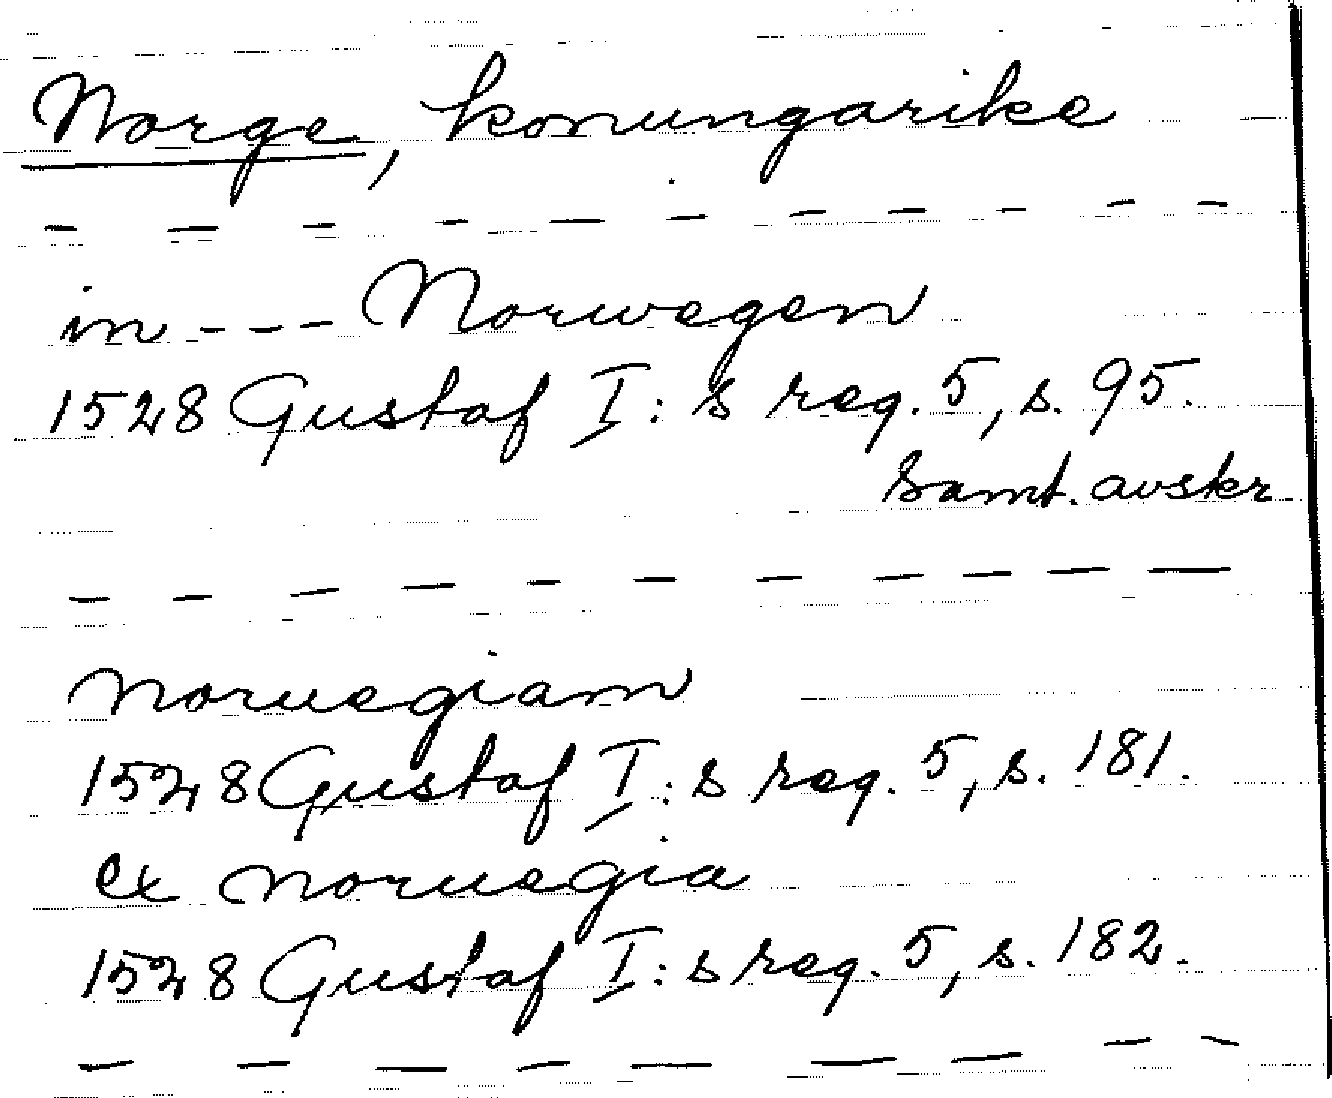 Norge, konungarike
— — — — — — — — — — —
in - - - Norwegen
1528 Gustaf I: s reg. 5, s. 95.
Samt. avskr.
— — — — — — — — — — —
noruegiam
1528 Gustaf I: s reg. 5, s. 181.
ex noruegia
1528 Gustaf I: s reg. 5, s. 182.
— — — — — — — — —